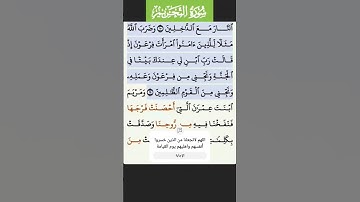 سورة التحريم
ٱلنَّارَ مَعَ ٱلدَّٰخِلِينَ ۝ وَضَرَبَ ٱللَّهُ
مَثَلًا لِّلَّذِينَ ءَامَنُوا۟ ٱمْرَأَتَ فِرْعَوْنَ إِذْ
قَالَتْ رَبِّ ٱبْنِ لِى عِندَكَ بَيْتًا فِى
ٱلْجَنَّةِ وَنَجِّنِى مِن فِرْعَوْنَ وَعَمَلِهِۦ
وَنَجِّنِى مِنَ ٱلْقَوْمِ ٱلظَّٰلِمِينَ ۝ وَمَرْيَمَ
ٱبْنَتَ عِمْرَٰنَ ٱلَّتِىٓ أَحْصَنَتْ فَرْجَهَا
فَنَفَخْنَا فِيهِ مِن رُّوحِنَا وَصَدَّقَتْ
اللهم لاتجعلنا من الذين خسروا
أنفسهم واهليهم يوم القيامة
مِنَ